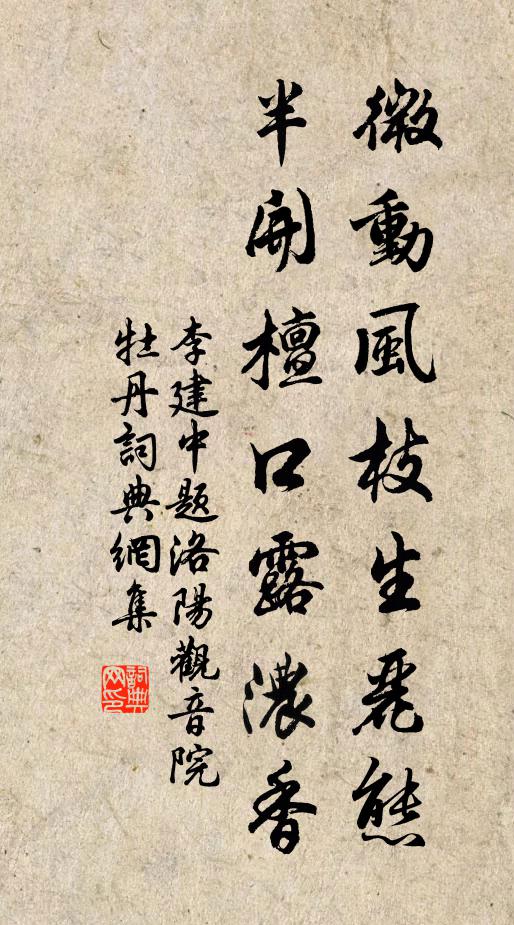 微動風枝生麗態
半開檀口露濃香
李建中題洛陽觀音院
牡丹詞典網集
詞典
网印